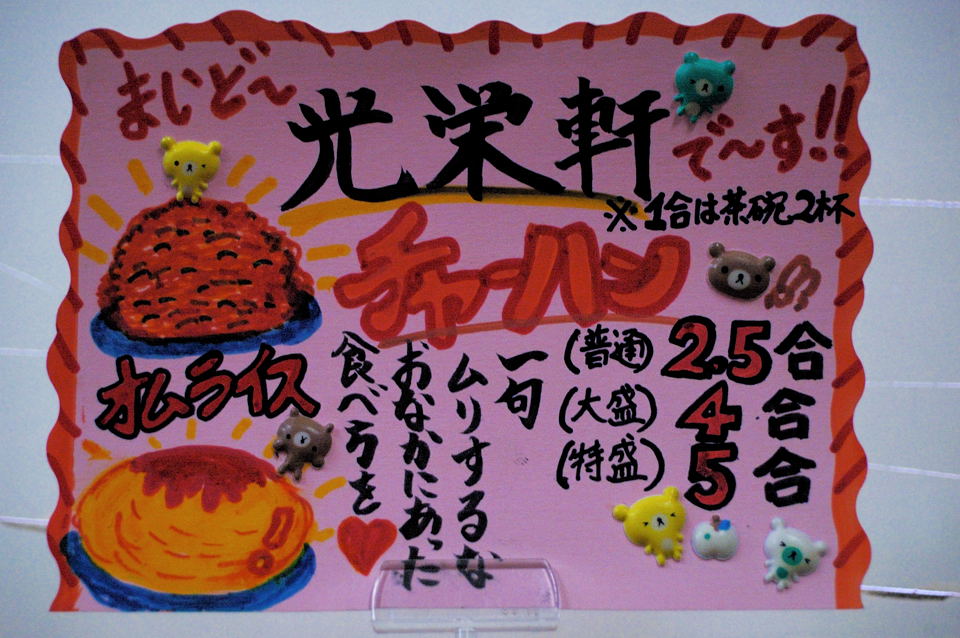 まいど〜
光栄軒
で〜す!!
※1合は茶碗2杯
チャーハン
(普通) 2.5合
(大盛) 4合
(特盛) 5合
オムライス
一句
ムリするな
おなかにあった
食べ方を♥